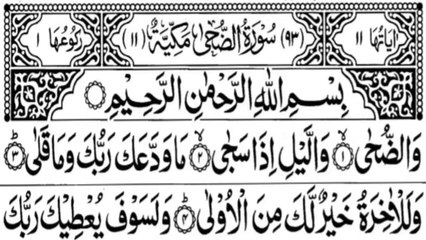 اٰیَاتُهَا ۱۱ (۹۳) سُوْرَةُ الضُّحٰى مَكِّيَّةٌ (۱۱) رُكُوْعُهَا ۱
بِسْمِ اللهِ الرَّحْمٰنِ الرَّحِيْمِ
وَالضُّحٰى ۱ وَالَّيْلِ اِذَا سَجٰى ۲ مَا وَدَّعَكَ رَبُّكَ وَمَا قَلٰى ۳
وَلَلْاٰخِرَةُ خَيْرٌ لَّكَ مِنَ الْاُوْلٰى ۴ وَلَسَوْفَ يُعْطِيْكَ رَبُّكَ